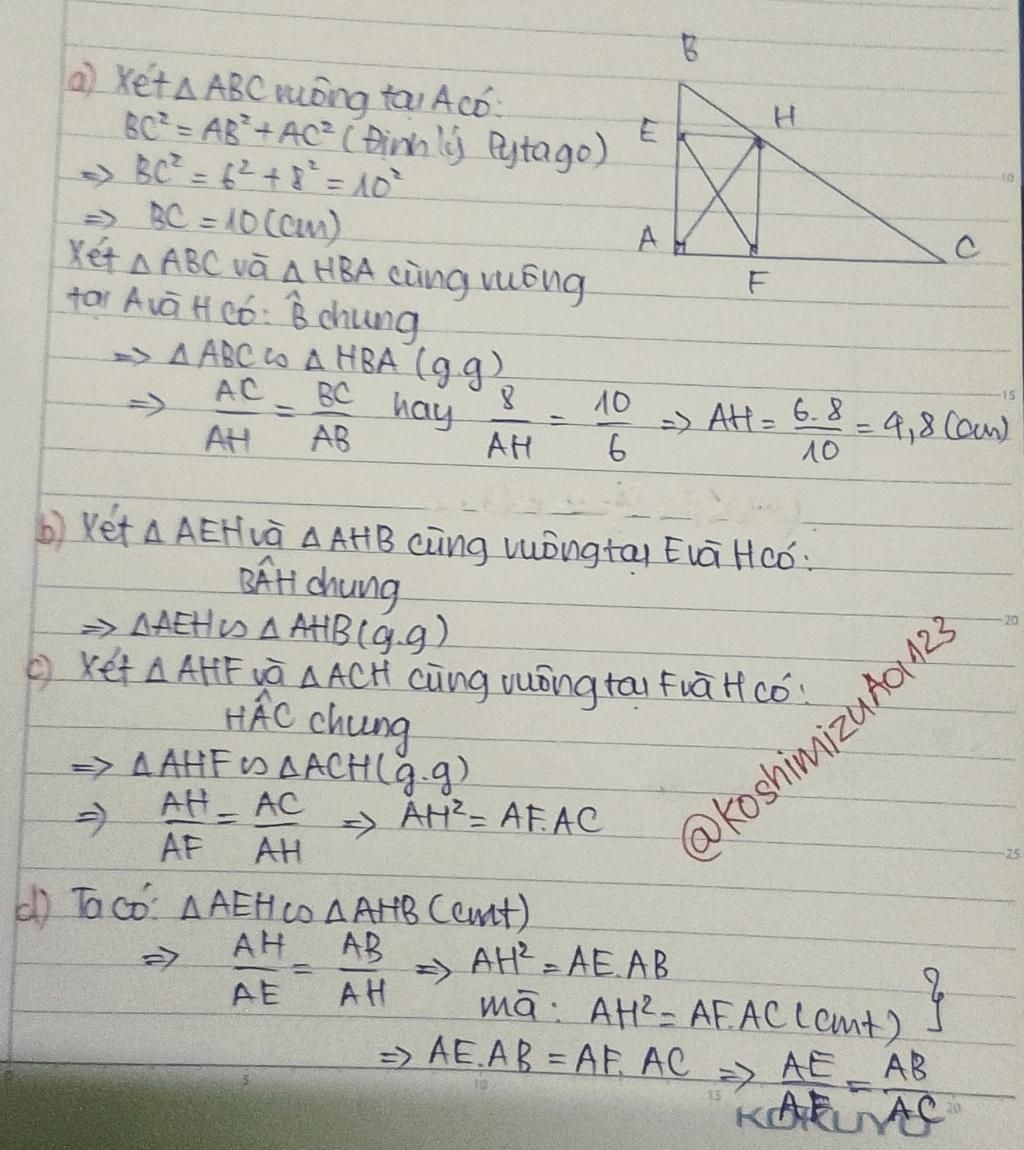 B
a) Xét △ ABC vuông tại A có:
E H
BC² = AB² + AC² (Định lý Pytago)
⇒ BC² = 6² + 8² = 10²
⇒ BC = 10 (cm)
A F C
Xét △ ABC và △ HBA cùng vuông
tại A và H có: B̂ chung
⇒ △ ABC ∽ △ HBA (g.g)
⇒ AC/AH = BC/AB hay 8/AH = 10/6 ⇒ AH = 6.8/10 = 4,8 (cm)
b) Xét △ AEH và △ AHB cùng vuông tại E và H có:
BÂH chung
⇒ △AEH ∽ △ AHB (g.g)
c) Xét △ AHF và △ ACH cùng vuông tại F và H có:
HÂC chung
⇒ △AHF ∽ △ACH (g.g)
⇒ AH/AF = AC/AH ⇒ AH² = AF.AC
@KoshimizuAoi123
d) Ta có: △AEH ∽ △AHB (cmt)
⇒ AH/AE = AB/AH ⇒ AH² = AE.AB
mà: AH² = AF.AC (cmt) }
⇒ AE.AB = AF.AC ⇒ AE/AF = AB/AC
KOKUYO